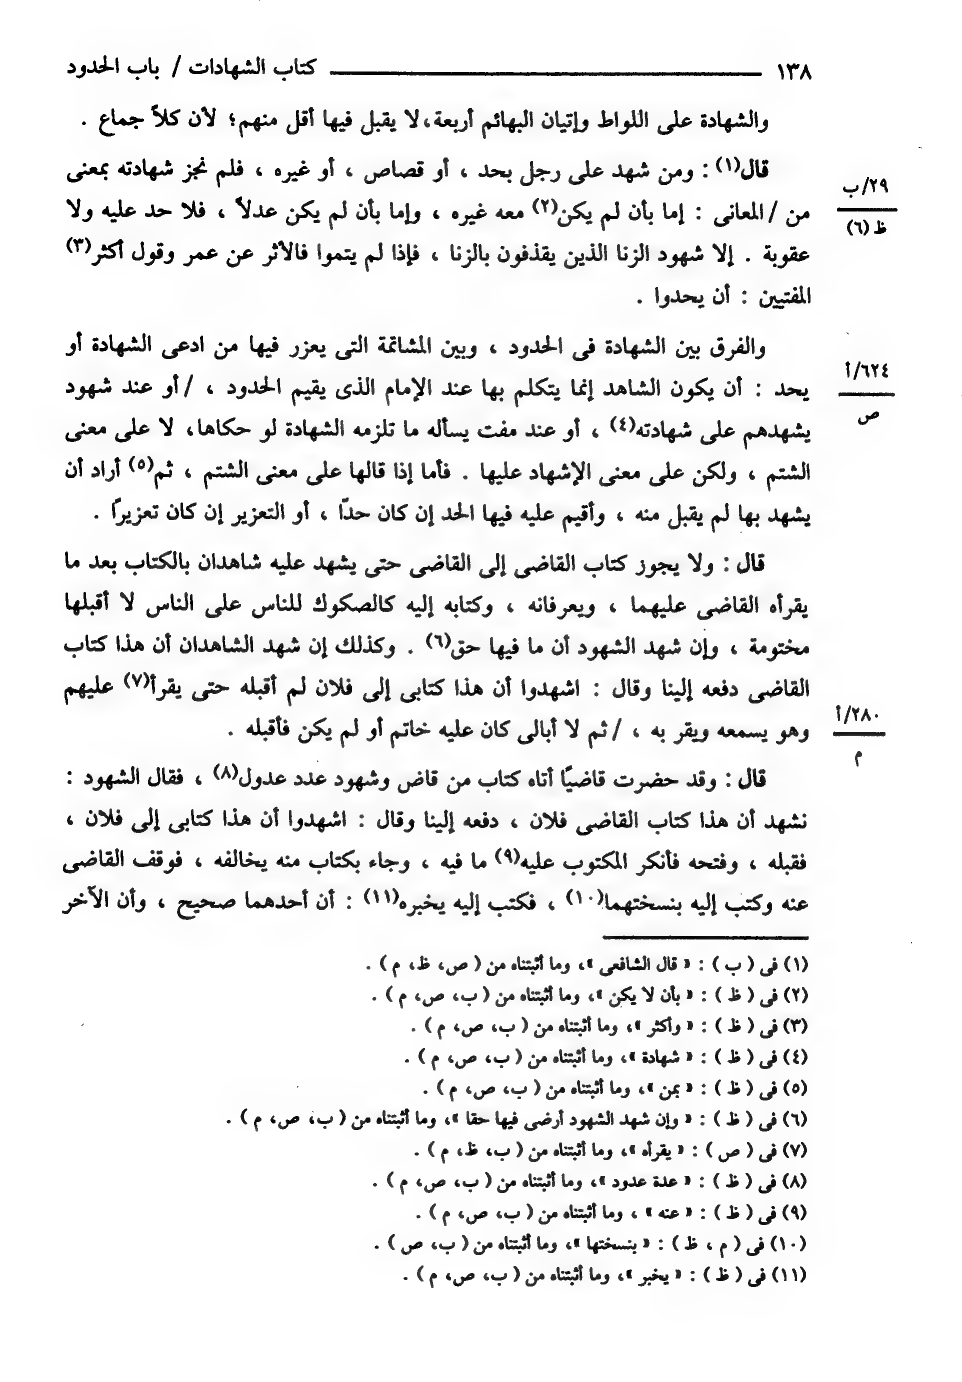 ١٣٨ كتاب الشهادات / باب الحدود
والشهادة على اللواط وإتيان البهائم أربعة، لا يقبل فيها أقل منهم؛ لأن كلاً جماع .
قال(١) : ومن شهد على رجل بحد ، أو قصاص ، أو غيره ، فلم نجز شهادته بمعنى
٢٩/ب
من / المعانى : إما بأن لم يكن(٢) معه غيره ، وإما بأن لم يكن عدلاً ، فلا حد عليه ولا
ظ (٦)
عقوبة . إلا شهود الزنا الذين يقذفون بالزنا ، فإذا لم يتموا فالأثر عن عمر وقول أكثر(٣)
المفتيين : أن يحدوا .
والفرق بين الشهادة فى الحدود ، وبين المشاتمة التى يعزر فيها من ادعى الشهادة أو
٦٢٤/أ
يحد : أن يكون الشاهد إنما يتكلم بها عند الإمام الذى يقيم الحدود ، / أو عند شهود
ص
يشهدهم على شهادته(٤) ، أو عند مفت يسأله ما تلزمه الشهادة لو حكاها، لا على معنى
الشتم ، ولكن على معنى الإشهاد عليها . فأما إذا قالها على معنى الشتم ، ثم(٥) أراد أن
يشهد بها لم يقبل منه ، وأقيم عليه فيها الحد إن كان حدّا ، أو التعزير إن كان تعزيرًا .
قال : ولا يجوز كتاب القاضى إلى القاضى حتى يشهد عليه شاهدان بالكتاب بعد ما
يقرأه القاضى عليهما ، ويعرفانه ، وكتابه إليه كالصكوك للناس على الناس لا أقبلها
مختومة ، وإن شهد الشهود أن ما فيها حق(٦) . وكذلك إن شهد الشاهدان أن هذا كتاب
القاضى دفعه إلينا وقال : اشهدوا أن هذا كتابى إلى فلان لم أقبله حتى يقرأ(٧) عليهم
٢٨٠/أ
وهو يسمعه ويقر به ، / ثم لا أبالى كان عليه خاتم أو لم يكن فأقبله .
م
قال : وقد حضرت قاضيًا أتاه كتاب من قاض وشهود عدد عدول(٨) ، فقال الشهود :
نشهد أن هذا كتاب القاضى فلان ، دفعه إلينا وقال : اشهدوا أن هذا كتابى إلى فلان ،
فقبله ، وفتحه فأنكر المكتوب عليه(٩) ما فيه ، وجاء بكتاب منه يخالفه ، فوقف القاضى
عنه وكتب إليه بنسختهما(١٠) ، فكتب إليه يخبره(١١) : أن أحدهما صحيح ، وأن الآخر
(١) فى ( ب ) : « قال الشافعى »، وما أثبتناه من ( ص، ظ، م ) .
(٢) فى ( ظ ) : « بأن لا يكن »، وما أثبتناه من ( ب، ص، م ) .
(٣) فى ( ظ ) : « وأكثر »، وما أثبتناه من ( ب، ص، م ) .
(٤) فى ( ظ ) : « شهادة »، وما أثبتناه من ( ب، ص، م ) .
(٥) فى ( ظ ) : « بمن »، وما أثبتناه من ( ب، ص، م ) .
(٦) فى ( ظ ) : « وإن شهد الشهود أرضى فيها حقا »، وما أثبتناه من ( ب، ص، م ) .
(٧) فى ( ص ) : « يقرأه »، وما أثبتناه من ( ب، ظ، م ) .
(٨) فى ( ظ ) : « عدة عدود »، وما أثبتناه من ( ب، ص، م ) .
(٩) فى ( ظ ) : « عنه » ، وما أثبتناه من ( ب، ص، م ) .
(١٠) فى ( م ، ظ ) : « بنسختها »، وما أثبتناه من ( ب، ص ) .
(١١) فى ( ظ ) : « يخبر »، وما أثبتناه من ( ب، ص، م ) .